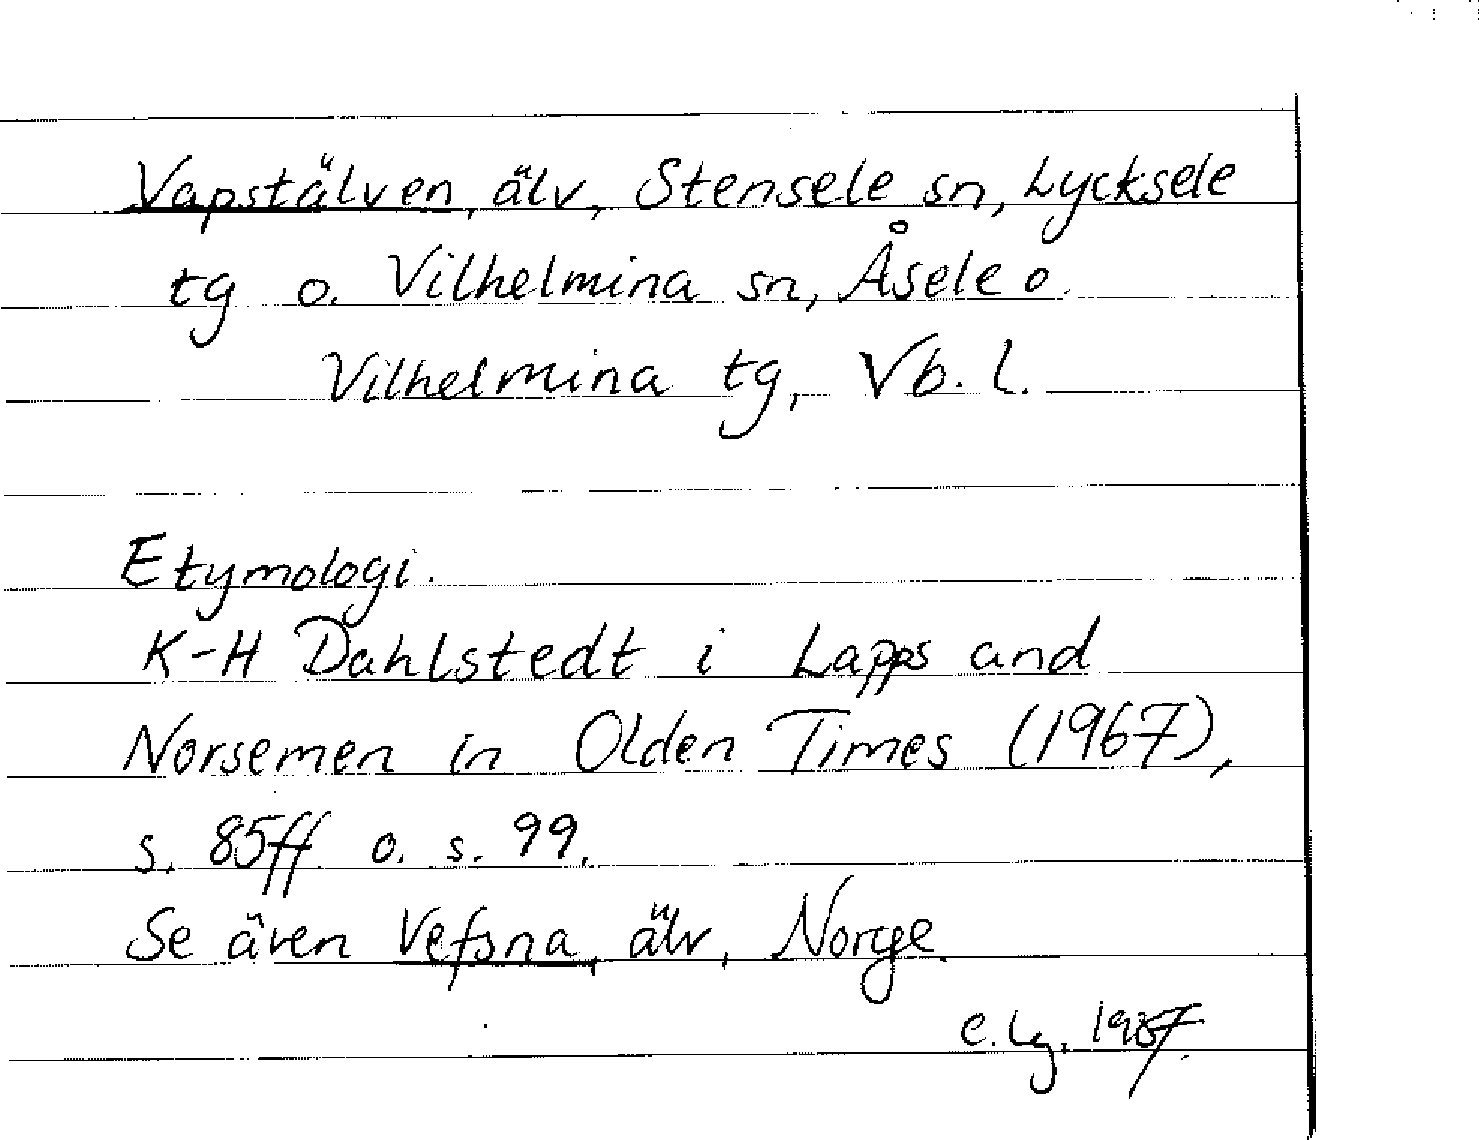 Vapstälven, älv, Stensele sn, Lycksele
tg o. Vilhelmina sn, Åsele o.
Vilhelmina tg, Vb. l.
Etymologi.
K-H Dahlstedt i Lapps and
Norsemen in Olden Times (1967),
s. 85ff o. s. 99.
Se även Vefsna, älv, Norge.
C. Lg. 1987.